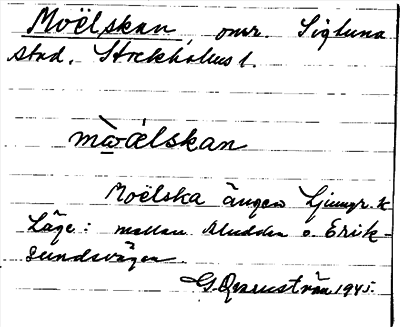 Moëlskan, omr. Sigtuna
stad. Stockholms l.
Moëlska ängen Ljungr. k
Läge: mellan Mudden o. Erik-
sundsvägen
1945.